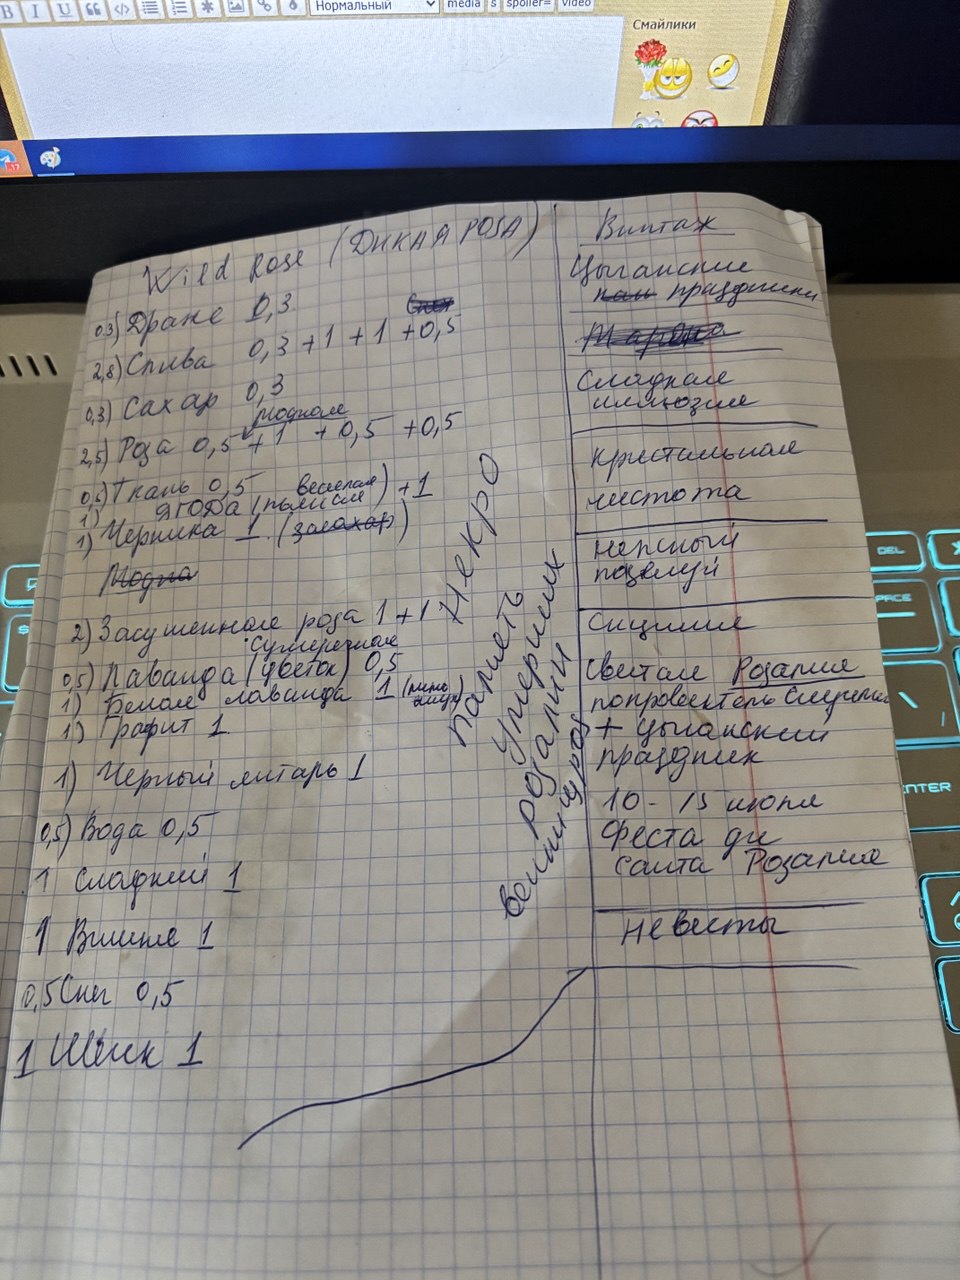 B I U
Нормальный
media
s
spoiler=
video
Смайлики
Wild Rose (ДИКАЯ РОЗА)
0,3) Дране 0,3
2,8) Слива 0,3 + 1 + 1 + 0,5
0,3) Сахар 0,3
модная
2,5) Роза 0,5 + 1 + 0,5 + 0,5
0,5) Ткань 0,5
1) ЯГОДА (веселая) + 1
1) Черника 1
Модна
2) Засушенная роза 1 + 1
Сумеречная
0,5) Лаванда (цветок) 0,5
1) Белая лаванда 1
1) Графит 1
1) Черный янтарь 1
0,5) Вода 0,5
1 Сладкий 1
1 Вишня 1
0,5 Снег 0,5
1 Шёлк 1
Некро
память
умерших
розалий
Винтаж
Цыганские
праздники
Сладкая
иллюзия
кристальная
чистота
нежный
поцелуй
Сицилия
Святая Розалия
покровитель Сицилии
+ Цыганский
праздник
10 - 15 июля
Феста ди
Санта Розалия
Невесты
DEL
ENTER